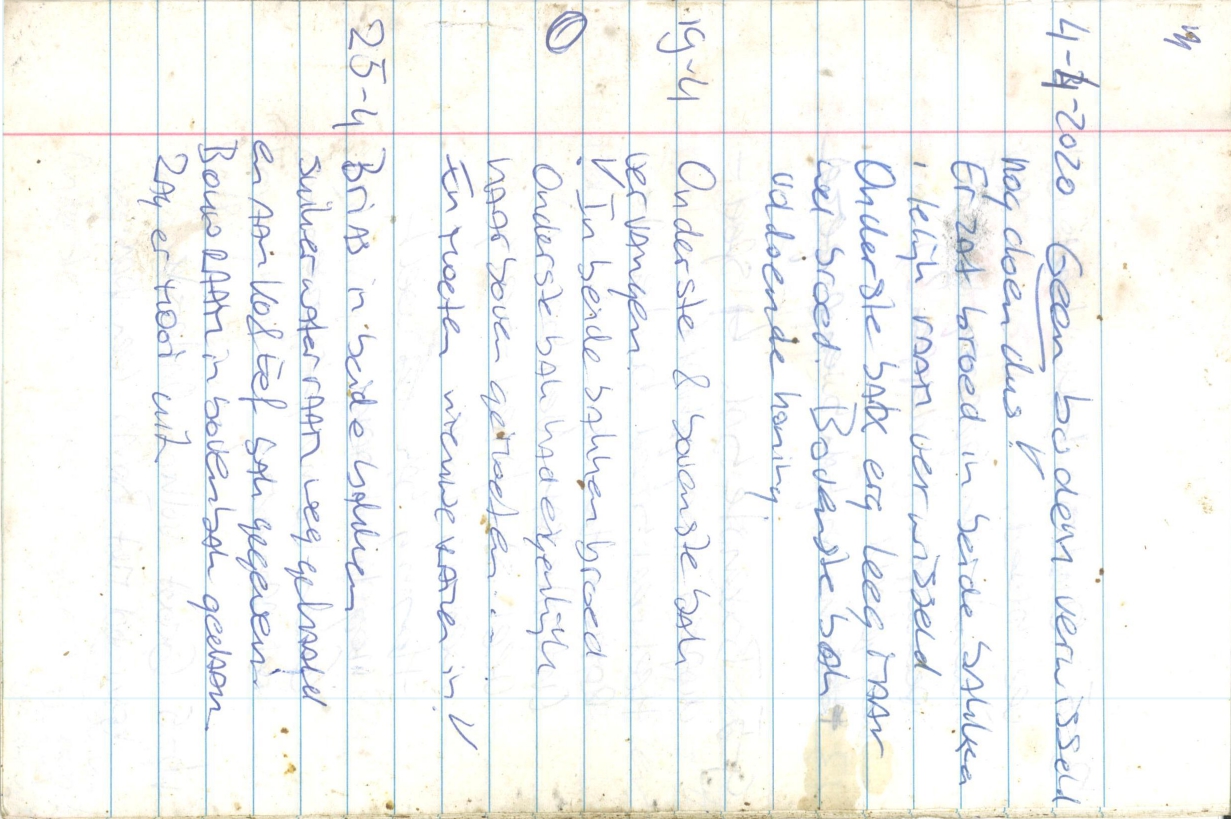 4-4-2020 Geen bodem verwisseld
nog doen dus!
Er zat broed in beide bakken
1 lelijk raam verwisseld
Onderste bak erg leeg maar
wel broed. Bovenste bak
voldoende honing.
19-4 Onderste & bovenste bak
vervangen.
! In beide bakken broed
0 Onderste bak had eigenlijk
naar boven gemoeten...
En moeten nieuwe ramen in!
25-4 Br in beide bakken
suikerwaterraam weggehaald
en aan bak gegeven.
Bouwraam in bovenbak gedaan
Zag er mooi uit